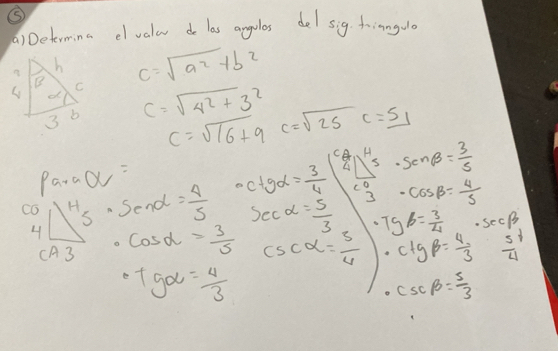 5
a) Determina el valor de los angulos del sig. triangulo
a h
4 β α c
3 b
c=√a²+b²
c=√4²+3²
c=√16+9 c=√25 c=5
Para α =
CO H
4 5
CA 3
• Senα=4/5
• Cosα=3/5
• Tgα=4/3
• ctgα=3/4
Secα=5/3
cscα=5/4
CA H
4 5
CO
3
• Senβ=3/5
• Cosβ=4/5
• Tgβ=3/4
• ctgβ=4/3
• cscβ=5/3
• secβ
5/4